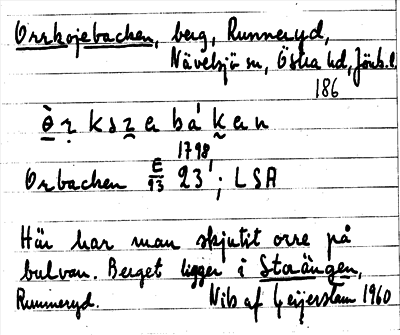 Orrkojebacken, berg, Runneryd,
Nävelsjö sn, Östra hd, Jönk. l.
186
Orbacken E/93 23 1798; LSA
Här har man skjutit orre på
bulvan. Berget ligger i Storängen,
Runneryd. Nils af Geijerstam 1960